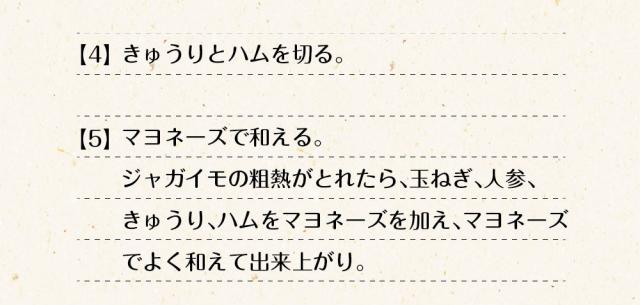 【4】きゅうりとハムを切る。
【5】マヨネーズで和える。
ジャガイモの粗熱がとれたら、玉ねぎ、人参、
きゅうり、ハムをマヨネーズを加え、マヨネーズ
でよく和えて出来上がり。